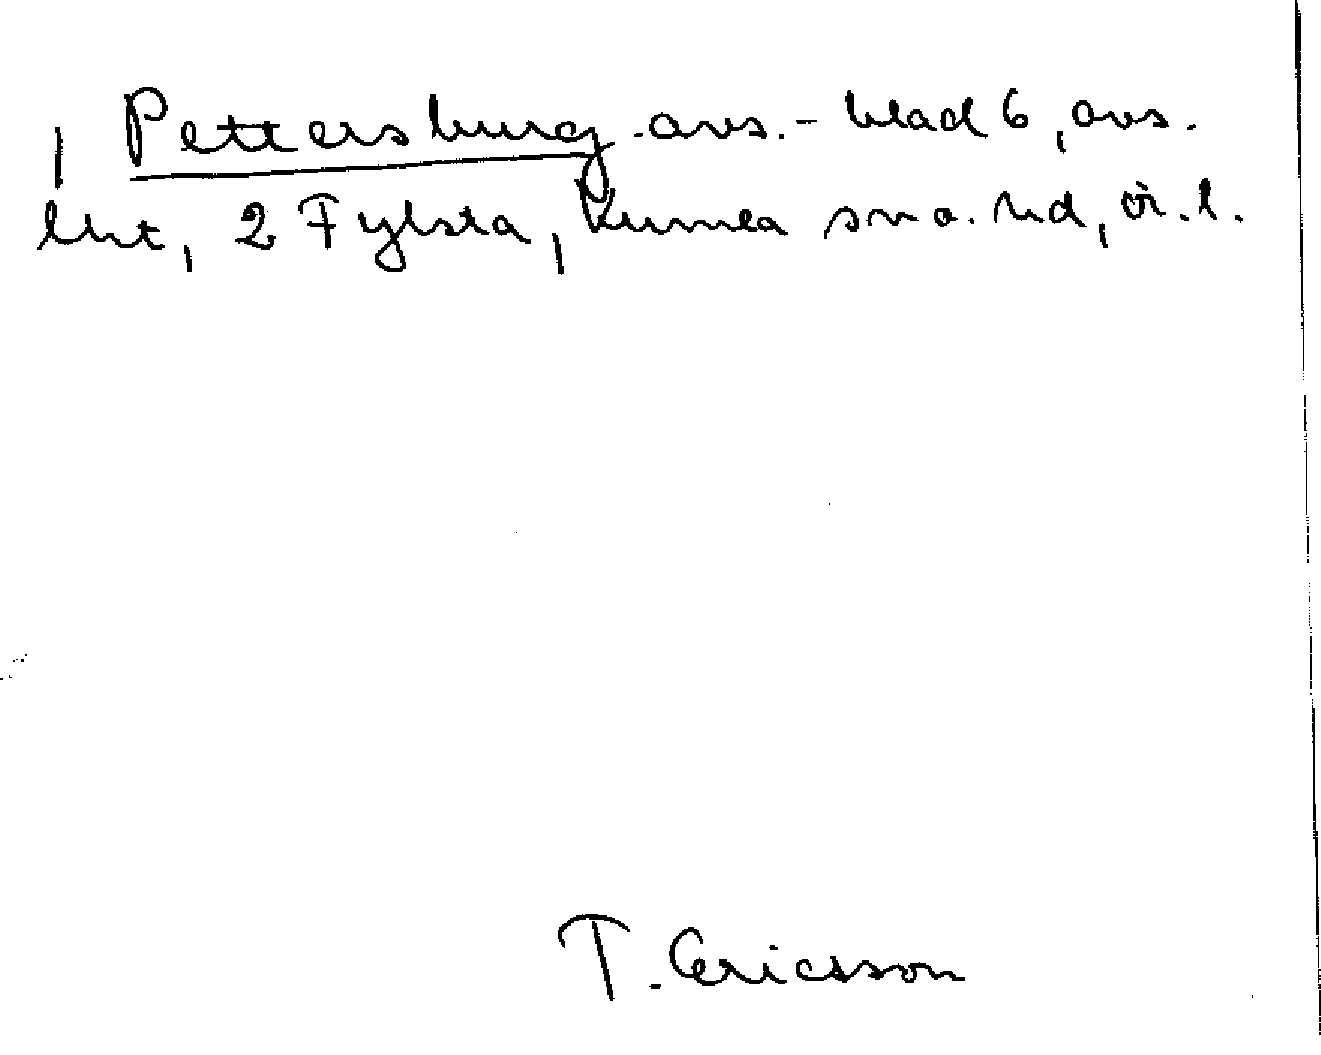 | Pettersburg avs. - blad 6, avs.
lht, 2 Fylsta, Kumla sn o. hd, ör. l.
T. Ericsson